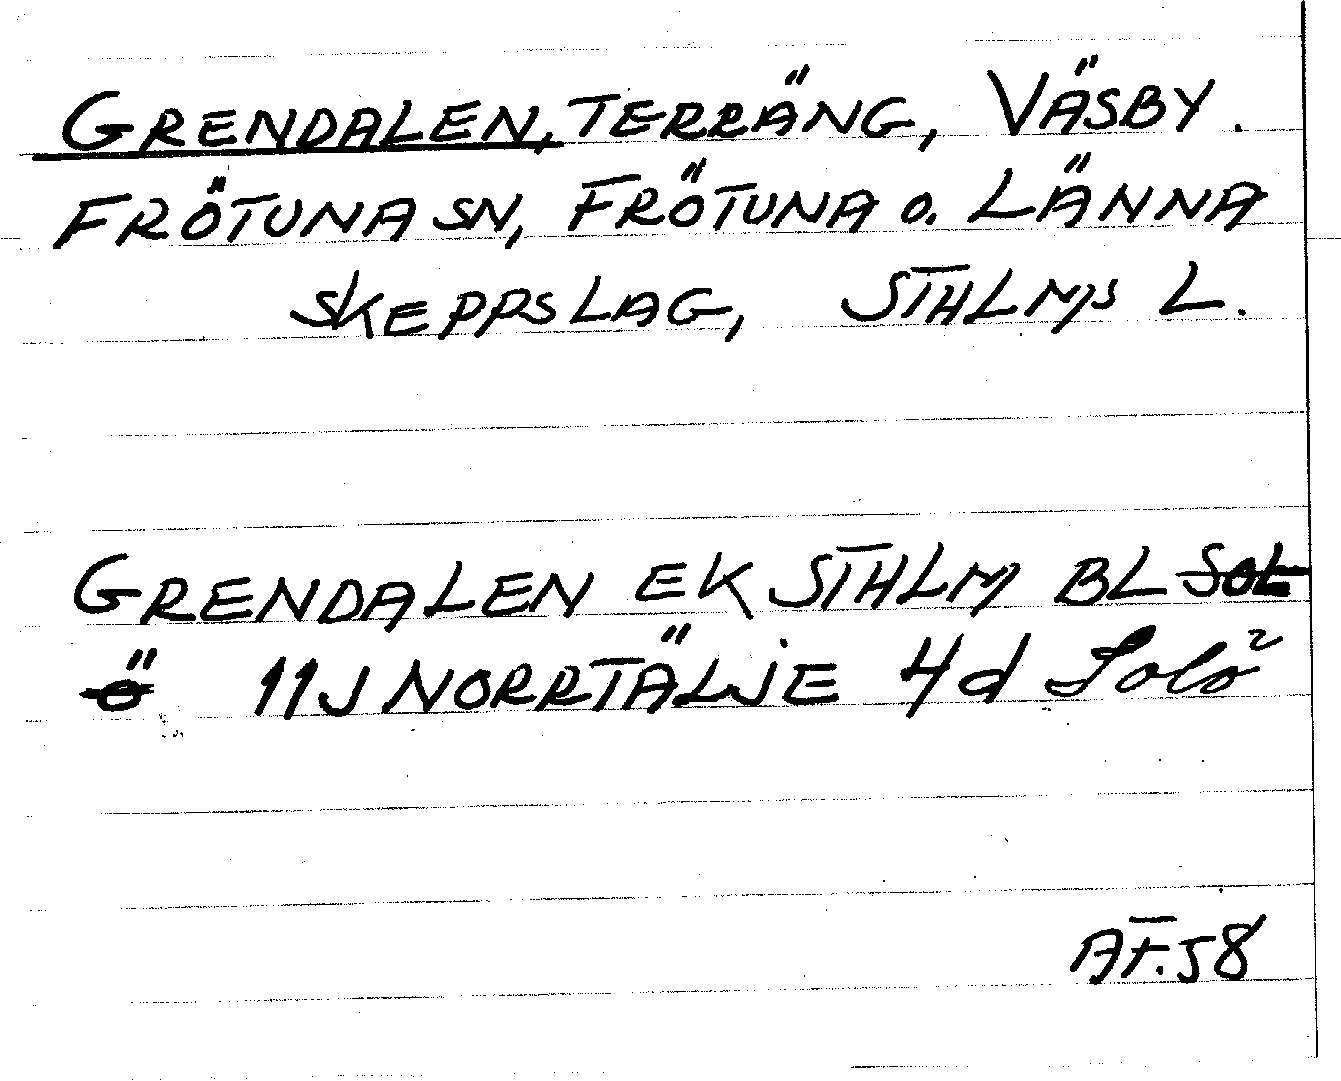 GRENDALEN, TERRÄNG, VÄSBY.
FRÖTUNA SN, FRÖTUNA O. LÄNNA
SKEPPSLAG, STHLMS L.
GRENDALEN EK STHLM BL SOL
Ö 11J NORRTÄLJE 4d Solö
AF.58